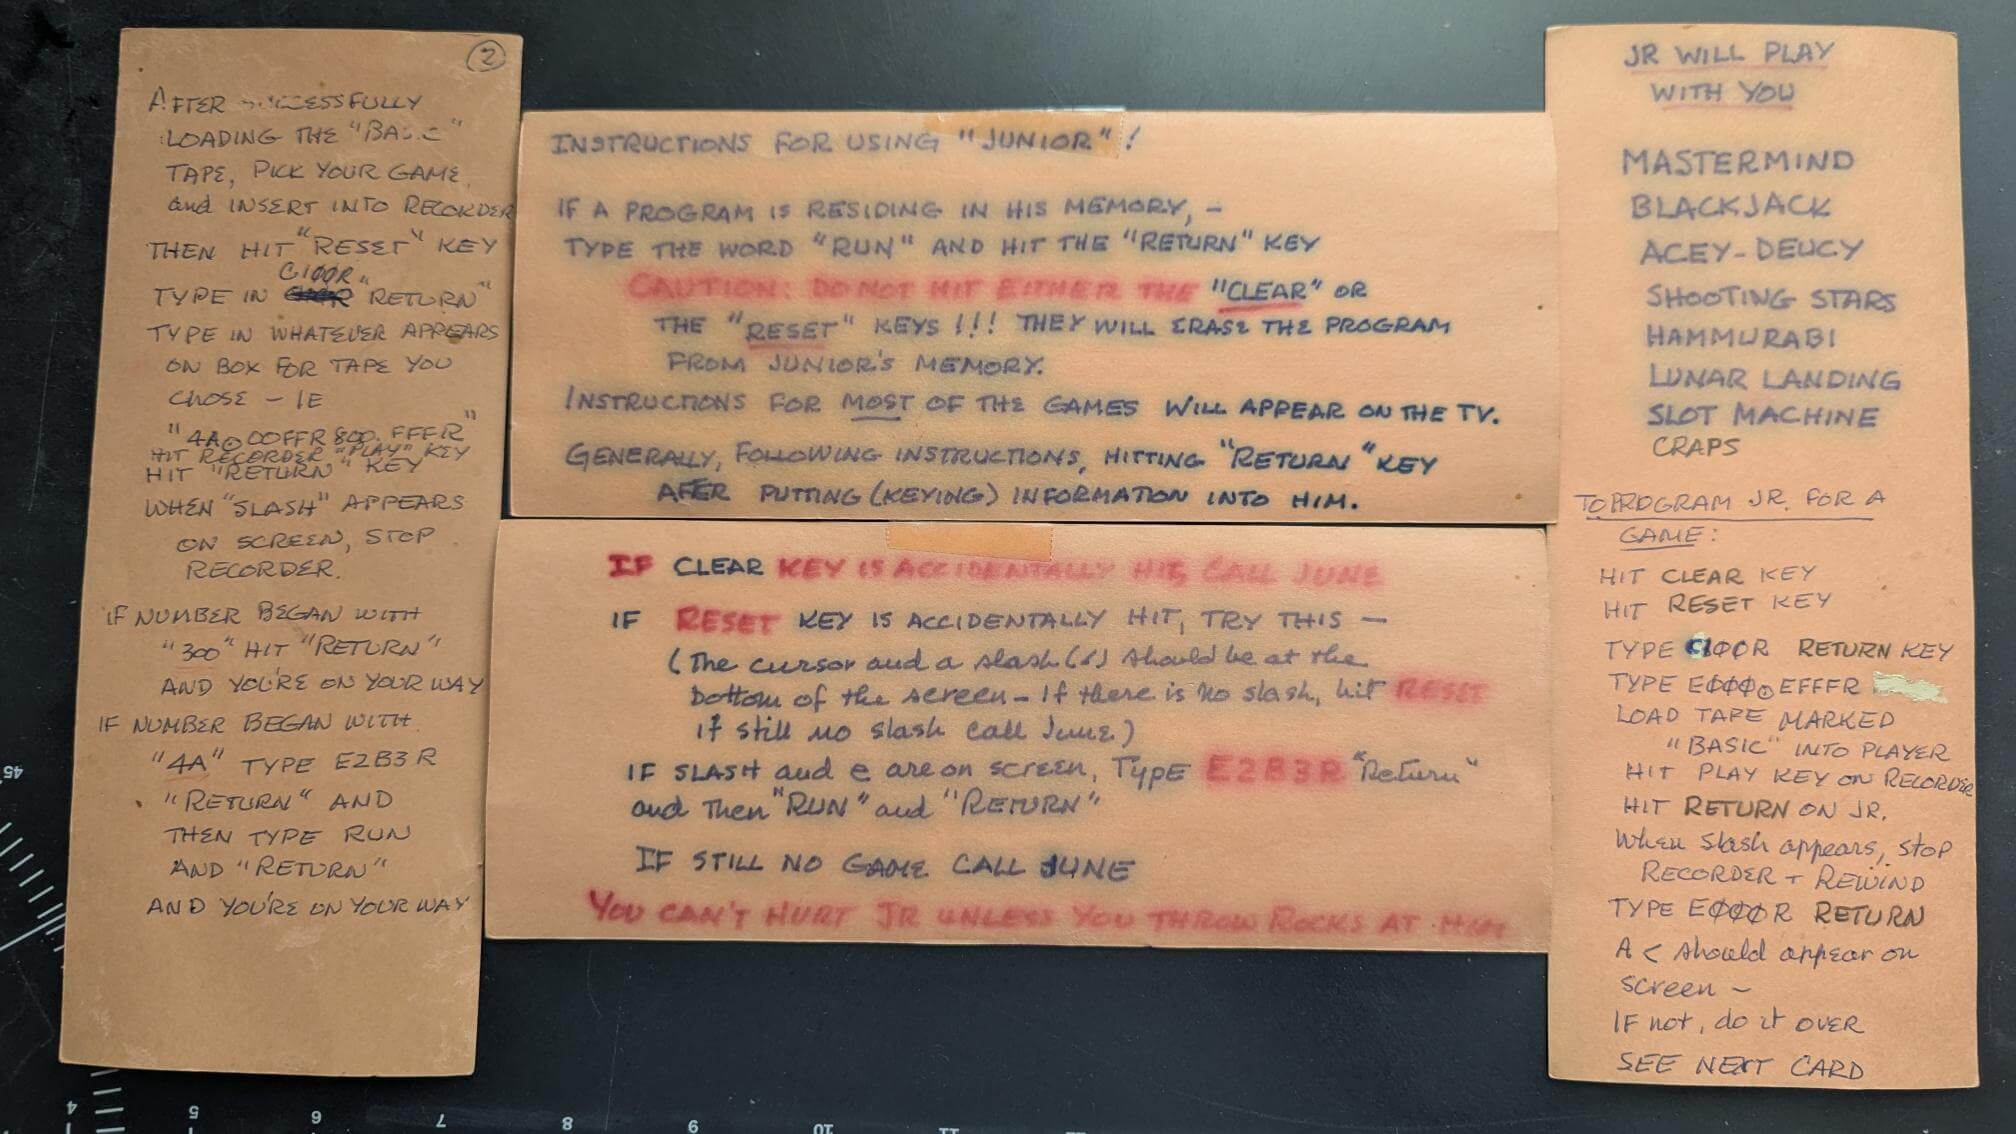 2
AFTER SUCCESSFULLY
LOADING THE "BASIC"
TAPE, PICK YOUR GAME
and INSERT INTO RECORDER
THEN HIT "RESET" KEY
C1ØØR
TYPE IN "RETURN"
TYPE IN WHATEVER APPEARS
ON BOX FOR TAPE YOU
CHOSE - IE
"4A.00FFR 800.FFFR"
HIT RECORDER "PLAY" KEY
HIT "RETURN" KEY
WHEN "SLASH" APPEARS
ON SCREEN, STOP
RECORDER.
IF NUMBER BEGAN WITH
"300" HIT "RETURN"
AND YOU'RE ON YOUR WAY
IF NUMBER BEGAN WITH
"4A" TYPE E2B3R
"RETURN" AND
THEN TYPE RUN
AND "RETURN"
AND YOU'RE ON YOUR WAY
INSTRUCTIONS FOR USING "JUNIOR"!
IF A PROGRAM IS RESIDING IN HIS MEMORY, -
TYPE THE WORD "RUN" AND HIT THE "RETURN" KEY
CAUTION: DO NOT HIT EITHER THE "CLEAR" OR
THE "RESET" KEYS!!! THEY WILL ERASE THE PROGRAM
FROM JUNIOR'S MEMORY.
INSTRUCTIONS FOR MOST OF THE GAMES WILL APPEAR ON THE TV.
GENERALLY, FOLLOWING INSTRUCTIONS, HITTING "RETURN" KEY
AFER PUTTING (KEYING) INFORMATION INTO HIM.
IF CLEAR KEY IS ACCIDENTALLY HIT, CALL JUNE
IF RESET KEY IS ACCIDENTALLY HIT, TRY THIS -
(The cursor and a slash (\) should be at the
bottom of the screen - If there is no slash, hit RESET
if still no slash call June.)
IF SLASH and @ are on screen, TYPE E2B3R "Return"
and then "RUN" and "RETURN"
IF STILL NO GAME CALL JUNE
YOU CAN'T HURT JR UNLESS YOU THROW ROCKS AT HIM
JR WILL PLAY
WITH YOU
MASTERMIND
BLACKJACK
ACEY-DEUCY
SHOOTING STARS
HAMMURABI
LUNAR LANDING
SLOT MACHINE
CRAPS
TO PROGRAM JR. FOR A
GAME:
HIT CLEAR KEY
HIT RESET KEY
TYPE C1ØØR RETURN KEY
TYPE EØØØ.EFFFR
LOAD TAPE MARKED
"BASIC" INTO PLAYER
HIT PLAY KEY ON RECORDER
HIT RETURN ON JR.
When slash appears, STOP
RECORDER + REWIND
TYPE EØØØR RETURN
A < should appear on
screen -
IF not, do it OVER
SEE NEXT CARD
45
4
5
6
7
8
9
10
11